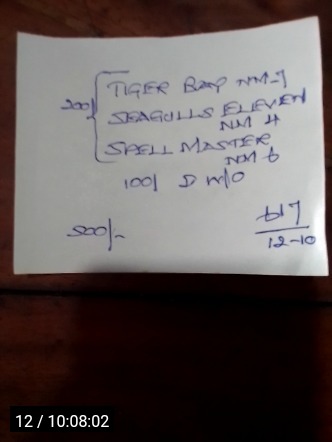 TIGER BAY NM-9
200/ SEAGULLS ELEVEN
NM 4
SPELL MASTER
NM 6
100/ D W/O
500/-
617
12-10
12 / 10:08:02